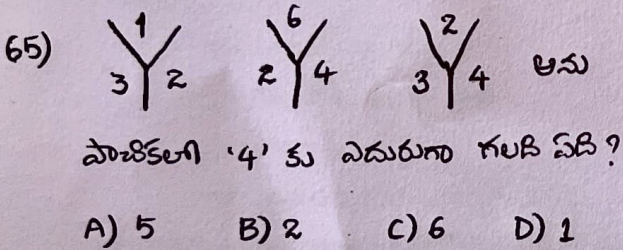 65) 1 3 2 6 2 4 2 3 4 అను
పాచికలో '4' కు ఎదురుగా గలది ఏది?
A) 5 B) 2 C) 6 D) 1